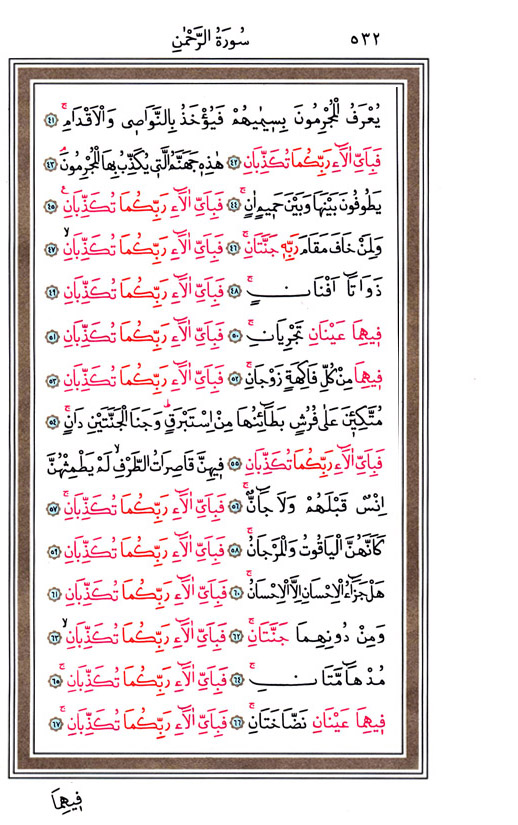 ٥٣٢ سُورَةُ الرَّحْمٰنِ
يُعْرَفُ الْمُجْرِمُونَ بِسِيمٰيهُمْ فَيُؤْخَذُ بِالنَّوَاصِى وَالْاَقْدَامِۚ ﴿٤١﴾
فَبِاَىِّ اٰلَٓاءِ رَبِّكُمَا تُكَذِّبَانِ ﴿٤٢﴾ هٰذِهٖ جَهَنَّمُ الَّتٖى يُكَذِّبُ بِهَا الْمُجْرِمُونَۘ ﴿٤٣﴾
يَطُوفُونَ بَيْنَهَا وَبَيْنَ حَمٖيمٍ اٰنٍۚ ﴿٤٤﴾ فَبِاَىِّ اٰلَٓاءِ رَبِّكُمَا تُكَذِّبَانِ۟ ﴿٤٥﴾
وَلِمَنْ خَافَ مَقَامَ رَبِّهٖ جَنَّتَانِۚ ﴿٤٦﴾ فَبِاَىِّ اٰلَٓاءِ رَبِّكُمَا تُكَذِّبَانِۙ ﴿٤٧﴾
ذَوَاتَٓا اَفْنَانٍۚ ﴿٤٨﴾ فَبِاَىِّ اٰلَٓاءِ رَبِّكُمَا تُكَذِّبَانِ ﴿٤٩﴾
فٖيهِمَا عَيْنَانِ تَجْرِيَانِۚ ﴿٥٠﴾ فَبِاَىِّ اٰلَٓاءِ رَبِّكُمَا تُكَذِّبَانِ ﴿٥١﴾
فٖيهِمَا مِنْ كُلِّ فَاكِهَةٍ زَوْجَانِۚ ﴿٥٢﴾ فَبِاَىِّ اٰلَٓاءِ رَبِّكُمَا تُكَذِّبَانِ ﴿٥٣﴾
مُتَّكِـٖٔينَ عَلٰى فُرُشٍ بَطَٓائِنُهَا مِنْ اِسْتَبْرَقٍۜ وَجَنَا الْجَنَّتَيْنِ دَانٍۚ ﴿٥٤﴾
فَبِاَىِّ اٰلَٓاءِ رَبِّكُمَا تُكَذِّبَانِ ﴿٥٥﴾ فٖيهِنَّ قَاصِرَاتُ الطَّرْفِۙ لَمْ يَطْمِثْهُنَّ
اِنْسٌ قَبْلَهُمْ وَلَا جَٓانٌّۚ ﴿٥٦﴾ فَبِاَىِّ اٰلَٓاءِ رَبِّكُمَا تُكَذِّبَانِۚ ﴿٥٧﴾
كَاَنَّهُنَّ الْيَاقُوتُ وَالْمَرْجَانُۚ ﴿٥٨﴾ فَبِاَىِّ اٰلَٓاءِ رَبِّكُمَا تُكَذِّبَانِ ﴿٥٩﴾
هَلْ جَزَٓاءُ الْاِحْسَانِ اِلَّا الْاِحْسَانُۚ ﴿٦٠﴾ فَبِاَىِّ اٰلَٓاءِ رَبِّكُمَا تُكَذِّبَانِ ﴿٦١﴾
وَمِنْ دُونِهِمَا جَنَّتَانِۚ ﴿٦٢﴾ فَبِاَىِّ اٰلَٓاءِ رَبِّكُمَا تُكَذِّبَانِۙ ﴿٦٣﴾
مُدْهَٓامَّتَانِۚ ﴿٦٤﴾ فَبِاَىِّ اٰلَٓاءِ رَبِّكُمَا تُكَذِّبَانِۚ ﴿٦٥﴾
فٖيهِمَا عَيْنَانِ نَضَّاخَتَانِۚ ﴿٦٦﴾ فَبِاَىِّ اٰلَٓاءِ رَبِّكُمَا تُكَذِّبَانِۚ ﴿٦٧﴾
فٖيهِمَا